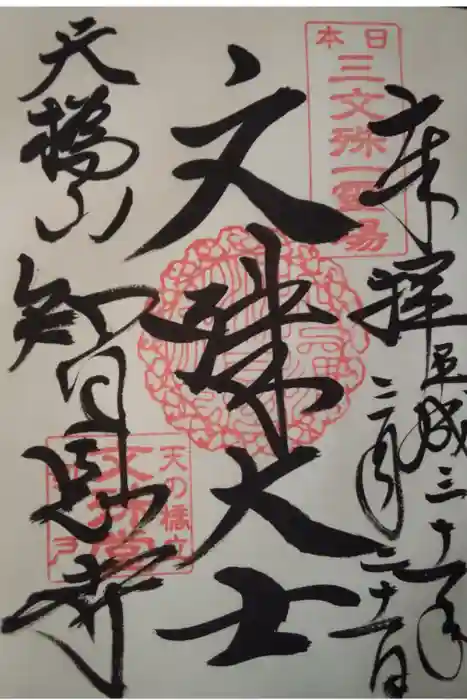 奉拝
平成三十一年
三月二十一日
日本
三文殊一霊場
文殊大士
天橋山
智恩寺
天の橋立
文殊堂